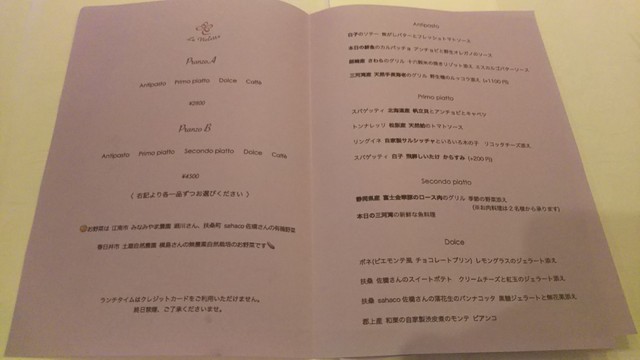 La Voletta
Pranzo A
Antipasto Primo piatto Dolce Caffè
¥2800
Pranzo B
Antipasto Primo piatto Secondo piatto Dolce Caffè
¥4500
〈 右記より各一品ずつお選びください 〉
お野菜は 江南市 みなみやま農園 さん、扶桑町 sahaco 佐橋さんの有機野菜
春日井市 土蔵自然農園 さんの無農薬自然栽培のお野菜です
ランチタイムはクレジットカードをご利用いただけません。
ご了承くださいませ。
Antipasto
白子のソテー 焦がしバターとフレッシュトマトソース
本日の鮮魚のカルパッチョ アンチョビと野生オレガノのソース
さわらのグリル 十六穀米の焼きリゾット添え エスカルゴバターソース
三河湾産 天然平貝海老のグリル 野生種のルッコラ添え (+1100円)
Primo piatto
スパゲッティ 北海道産 帆立貝とアンチョビとキャベツ
トンナレッリ 天然蛸のトマトソース
リングイネ 自家製サルシッチャといろいろきの子 リコッタチーズ添え
スパゲッティ 白子 飛騨しいたけ からすみ (+200円)
Secondo piatto
静岡県産 富士金華豚のロース肉のグリル 季節の野菜添え
(※お肉料理は2名様から承ります)
本日の三河湾の新鮮な魚料理
Dolce
ボネ(ピエモンテ風 チョコレートプリン) レモングラスのジェラート添え
扶桑 佐橋さんのスイートポテト クリームチーズと紅玉のジェラート添え
扶桑 sahaco 佐橋さんの落花生のパンナコッタ 黒糖ジェラートと無花果添え
郡上産 和栗の自家製渋皮煮のモンテ ビアンコ